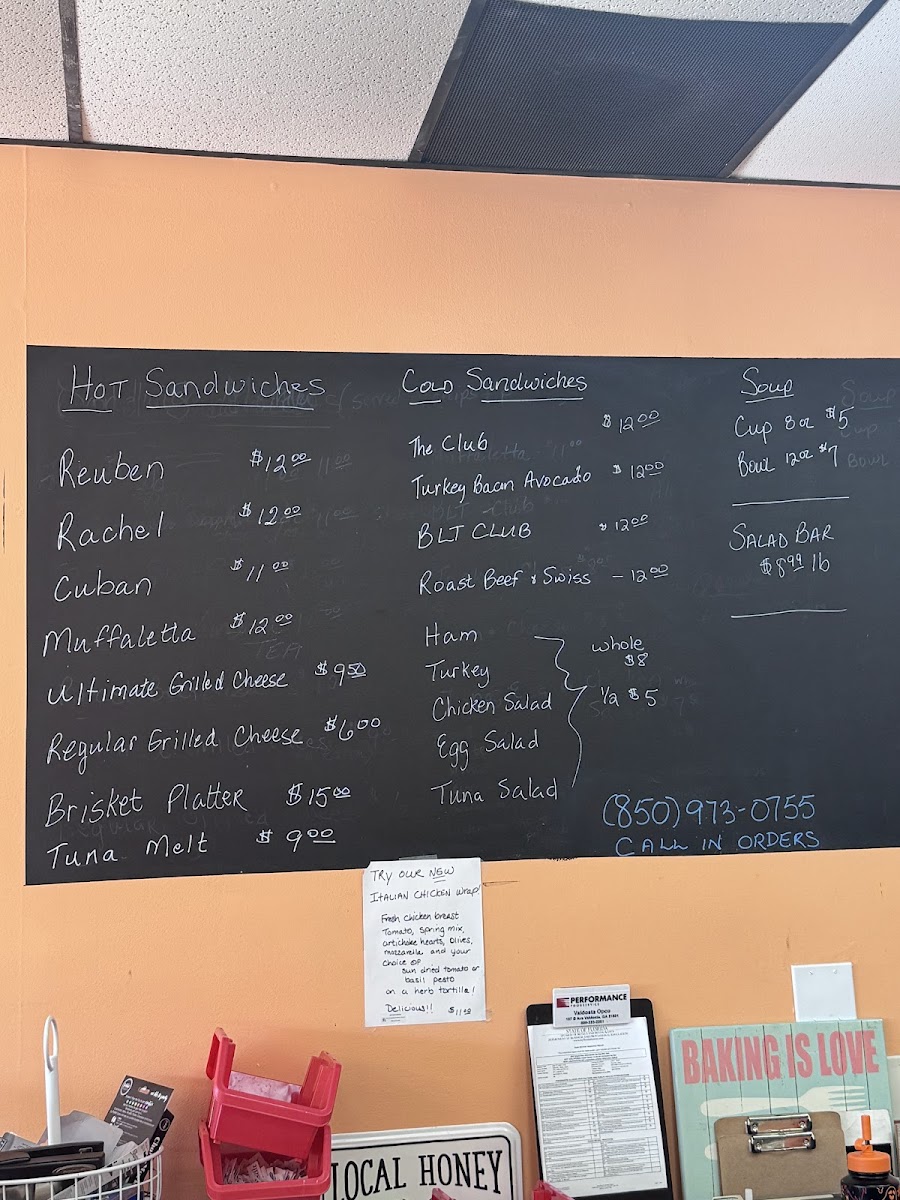 Hot Sandwiches
Reuben $12.00
Rachel $12.00
Cuban $11.00
Muffaletta $12.00
Ultimate Grilled Cheese $9.50
Regular Grilled Cheese $6.00
Brisket Platter $15.00
Tuna Melt $9.00
Cold Sandwiches
The Club $12.00
Turkey Bacon Avocado $12.00
BLT CLUB $12.00
Roast Beef & Swiss - 12.00
Ham
Turkey
Chicken Salad
Egg Salad
Tuna Salad
whole
$8
1/2 $5
Soup
Cup 8 oz $5
Bowl 12 oz $7
SALAD BAR
$8.99 lb
(850)973-0755
CALL IN ORDERS
TRY OUR NEW
ITALIAN CHICKEN Wrap!
Fresh chicken breast
Tomato, spring mix,
artichoke hearts, olives,
mozzarella and your
choice of
sun dried tomato or
basil pesto
on a herb tortilla!
Delicious!!
PERFORMANCE
FOODSERVICE
Valdosta Opco
STATE OF FLORIDA
BAKING IS LOVE
LOCAL HONEY